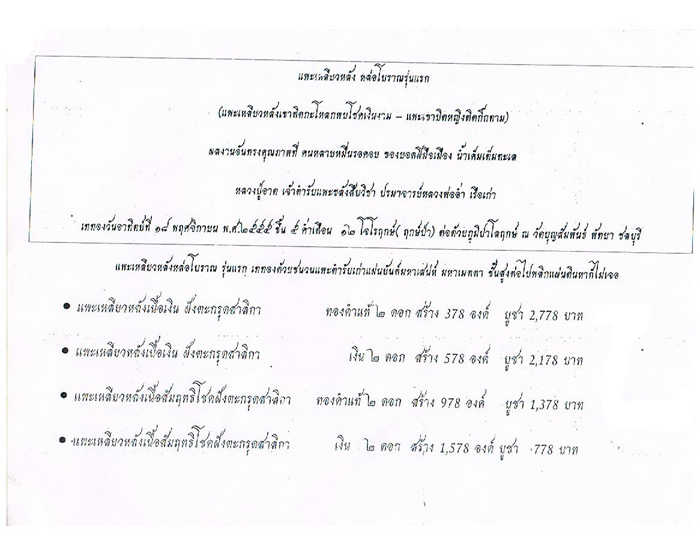 แพะเหลียวหลัง หล่อโบราณรุ่นแรก
(แพะเหลียวหลังเขาติดกะโหลกพบโชคเงินงาม – แพะเขาบิดหญิงติดกี๊กตาม)
ผลงานอันทรงคุณภาพที่ คนหลายหมื่นรอคอย ของยอดฝีมือเมือง น้ำเค็มเต็มทะเล
หลวงปู่อาด เจ้าตำรับแพะขลังสืบวิชา ปรมาจารย์หลวงพ่ออ่ำ เรือเก่า
เททองวันอาทิตย์ที่ ๑๘ พฤศจิกายน พ.ศ.๒๕๕๕ ขึ้น ๕ ค่ำเดือน ๑๒ โจโรฤกษ์( ฤกษ์ปล้า) ต่อด้วยภูมิปาโลฤกษ์ ณ วัดบุญสัมพันธ์ พัทยา ชลบุรี
แพะเหลียวหลังหล่อโบราณ รุ่นแรก เททองด้วยชนวนแพะตำรับเก่าแผ่นยันต์มหาเสน่ห์ มหาเมตตา ชั้นสูงต่อไปพลิกแผ่นดินหาก็ไม่เจอ
• แพะเหลียวหลังเนื้อเงิน ฝังตะกรุดสาลิกา ทองคำแท้ ๒ ดอก สร้าง 378 องค์ บูชา 2,778 บาท
• แพะเหลียวหลังเนื้อเงิน ฝังตะกรุดสาลิกา เงิน ๒ ดอก สร้าง 578 องค์ บูชา 2,178 บาท
• แพะเหลียวหลังเนื้อสัมฤทธิ์โชคฝังตะกรุดสาลิกา ทองคำแท้ ๒ ดอก สร้าง 978 องค์ บูชา 1,378 บาท
• แพะเหลียวหลังเนื้อสัมฤทธิ์โชคฝังตะกรุดสาลิกา เงิน ๒ ดอก สร้าง 1,578 องค์ บูชา 778 บาท